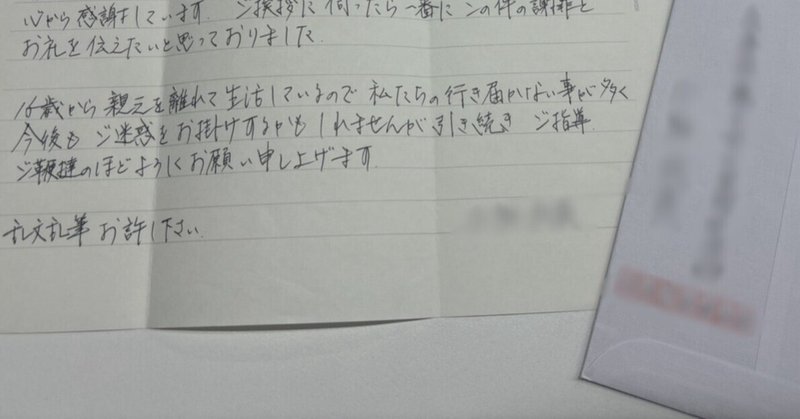 心から感謝をしています。ご挨拶に伺ったら一番にこの件の謝罪と
お礼を伝えたいと思っておりました。
16歳から親元を離れて生活しているので私たちの行き届かない事が多く
今後もご迷惑をお掛けするかもしれませんが引き続きご指導
ご鞭撻のほどよろしくお願い申し上げます。
乱文乱筆お許し下さい。